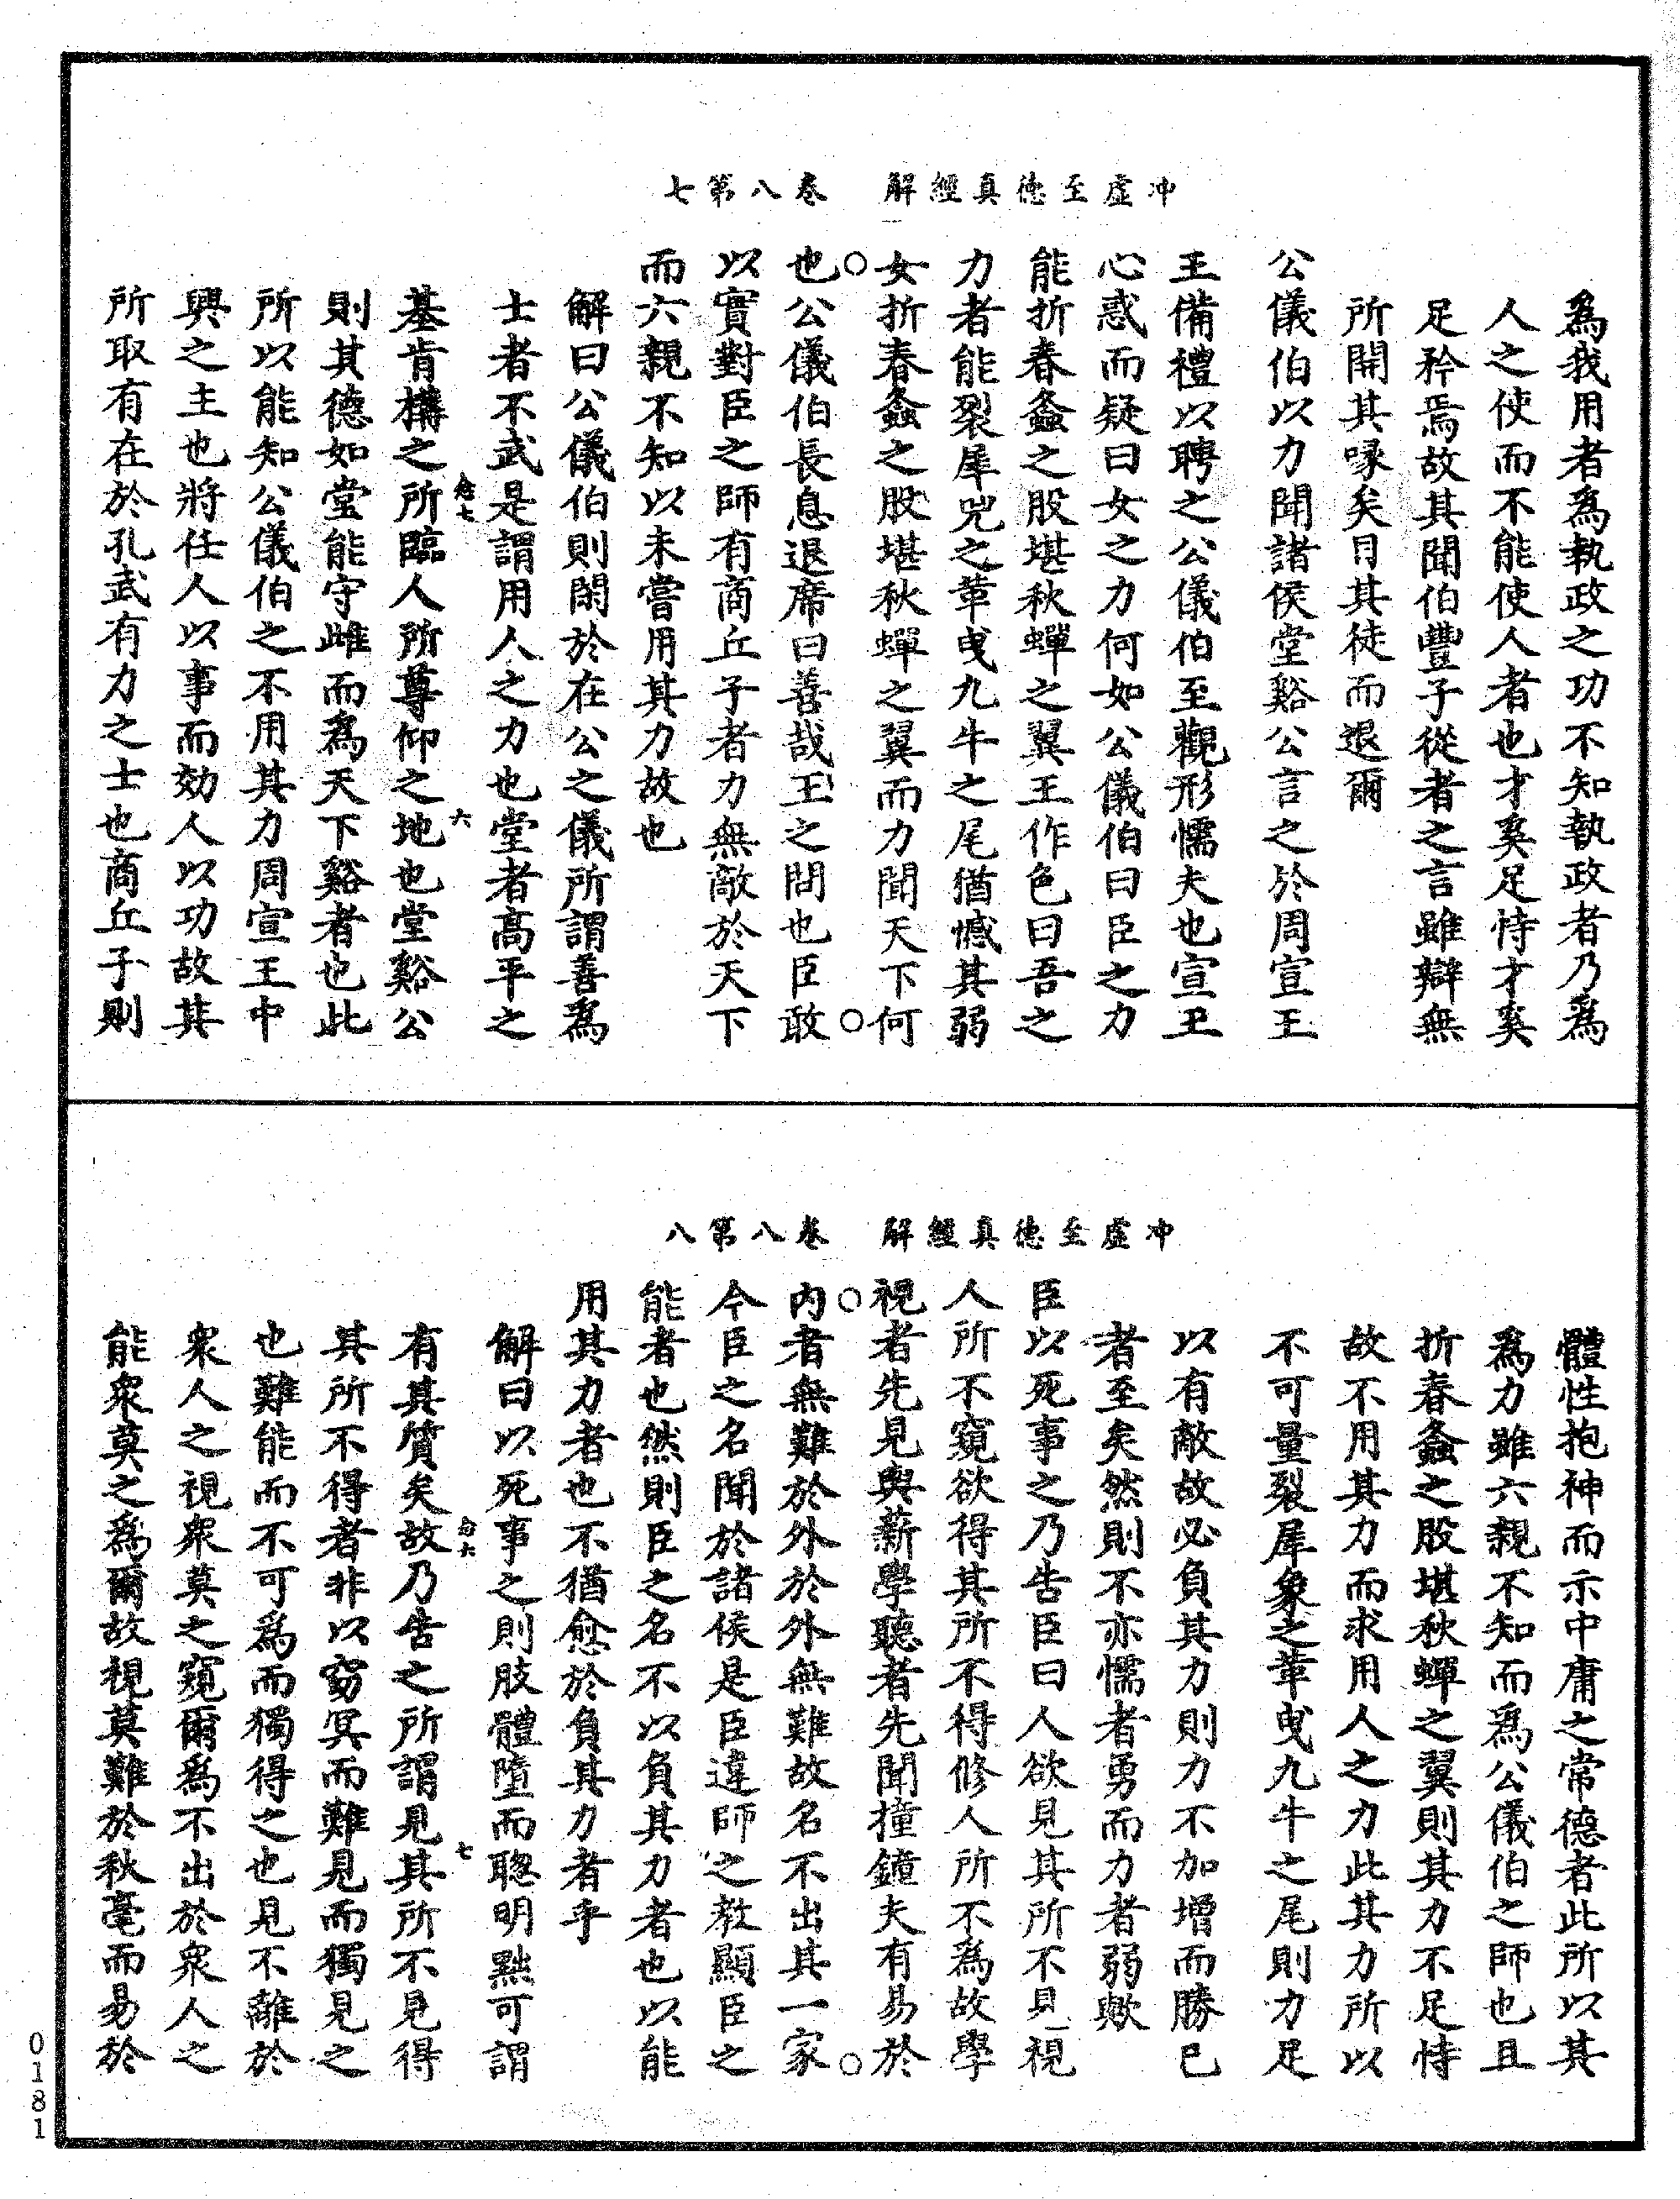 冲虛至德真經解　卷八第七
爲我用者爲執政之功不知執政者乃爲
人之使而不能使人者也才奚足恃才奚
足矜焉故其聞伯豐子從者之言雖辯無
所開其喙矣目其徒而退爾
公儀伯以力聞諸侯堂谿公言之於周宣王
王備禮以聘之公儀伯至觀形懦夫也宣王
心惑而疑曰女之力何如公儀伯曰臣之力
能折春螽之股堪秋蟬之翼王作色曰吾之
力者能裂犀兕之革曳九牛之尾猶憾其弱
女折春螽之股堪秋蟬之翼而力聞天下何
也公儀伯長息退席曰善哉王之問也臣敢
以實對臣之師有商丘子者力無敵於天下
而六親不知以未嘗用其力故也
解曰公儀伯則閑於在公之儀所謂善爲
士者不武是謂用人之力也堂者高平之
基肯構之所臨人所尊仰之地也堂谿公
則其德如堂能守雌而爲天下谿者也此
所以能知公儀伯之不用其力周宣王中
興之主也將任人以事而効人以功故其
所取有在於孔武有力之士也商丘子則
冲虛至德真經解　卷八第八
體性抱神而示中庸之常德者此所以其
爲力雖六親不知而爲公儀伯之師也且
折春螽之股堪秋蟬之翼則其力不足恃
故不用其力而求用人之力此其力所以
不可量裂犀象之革曳九牛之尾則力足
以有敵故必負其力則力不加增而勝已
者至矣然則不亦懦者勇而力者弱歟
臣以死事之乃告臣曰人欲見其所不見視
人所不窺欲得其所不得修人所不爲故學
視者先見輿薪學聽者先聞撞鐘夫有易於
內者無難於外於外無難故名不出其一家
今臣之名聞於諸侯是臣違師之教顯臣之
能者也然則臣之名不以負其力者也以能
用其力者也不猶愈於負其力者乎
解曰以死事之則肢體墮而聰明黜可謂
有其質矣故乃告之所謂見其所不見得
其所不得者非以窈冥而難見而獨見之
也難能而不可爲而獨得之也見不離於
衆人之視衆莫之窺爾爲不出於衆人之
能衆莫之爲爾故視莫難於秋毫而易於
0181